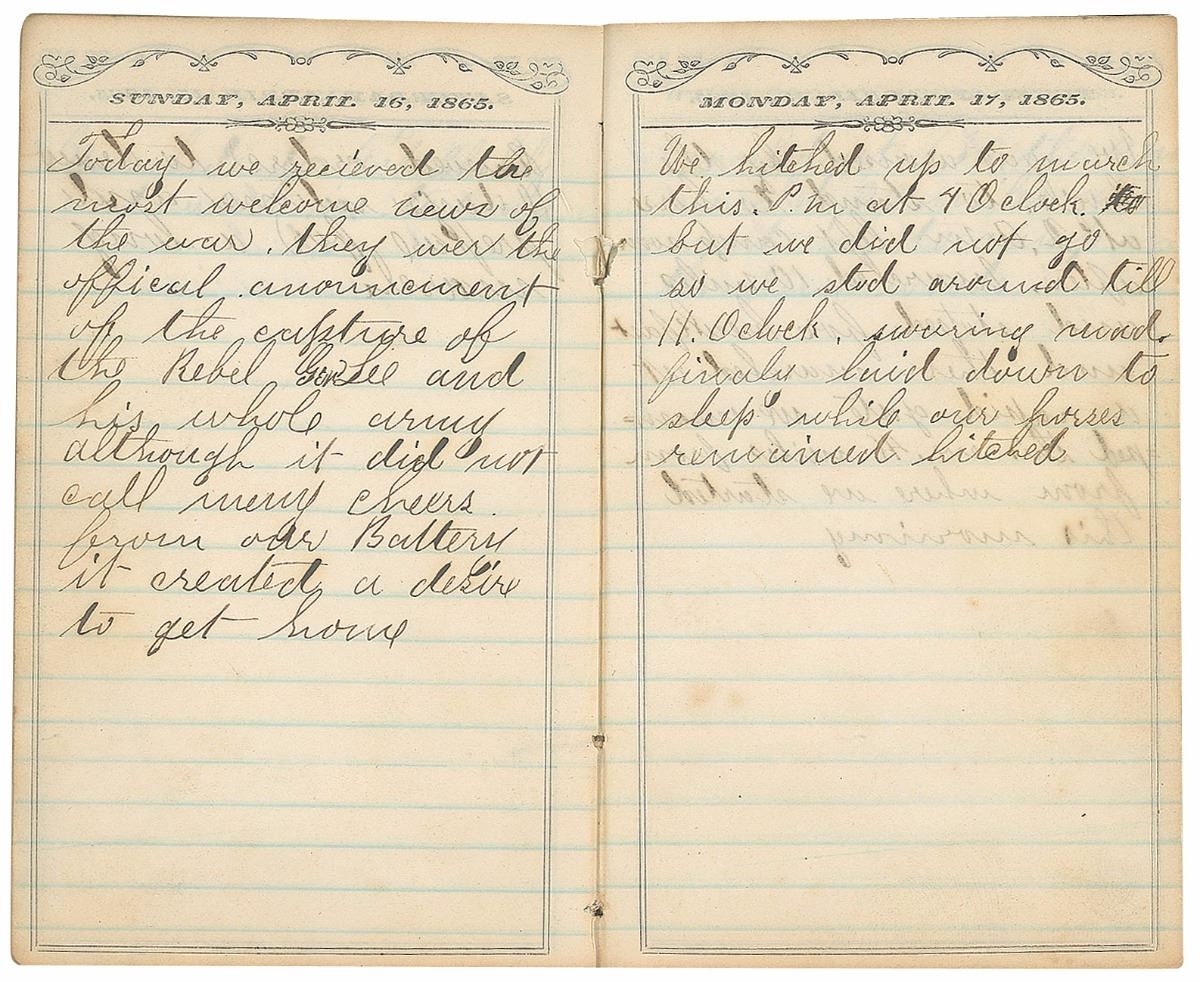 SUNDAY, APRIL 16, 1865.
Today we recieved the
most welcome news of
the war. they wer the
offical anounciment
of the capture of
the Rebel Gen Lee and
his whole army
although it did not
call meny cheers
from our Battery
it created a desire
to get home
MONDAY, APRIL 17, 1865.
We hitched up to march
this. P.M at 4 O clock.
but we did not go
so we stod around till
11. O clock. swaring mad.
finaly laid down to
sleep while our horses
remained hitched